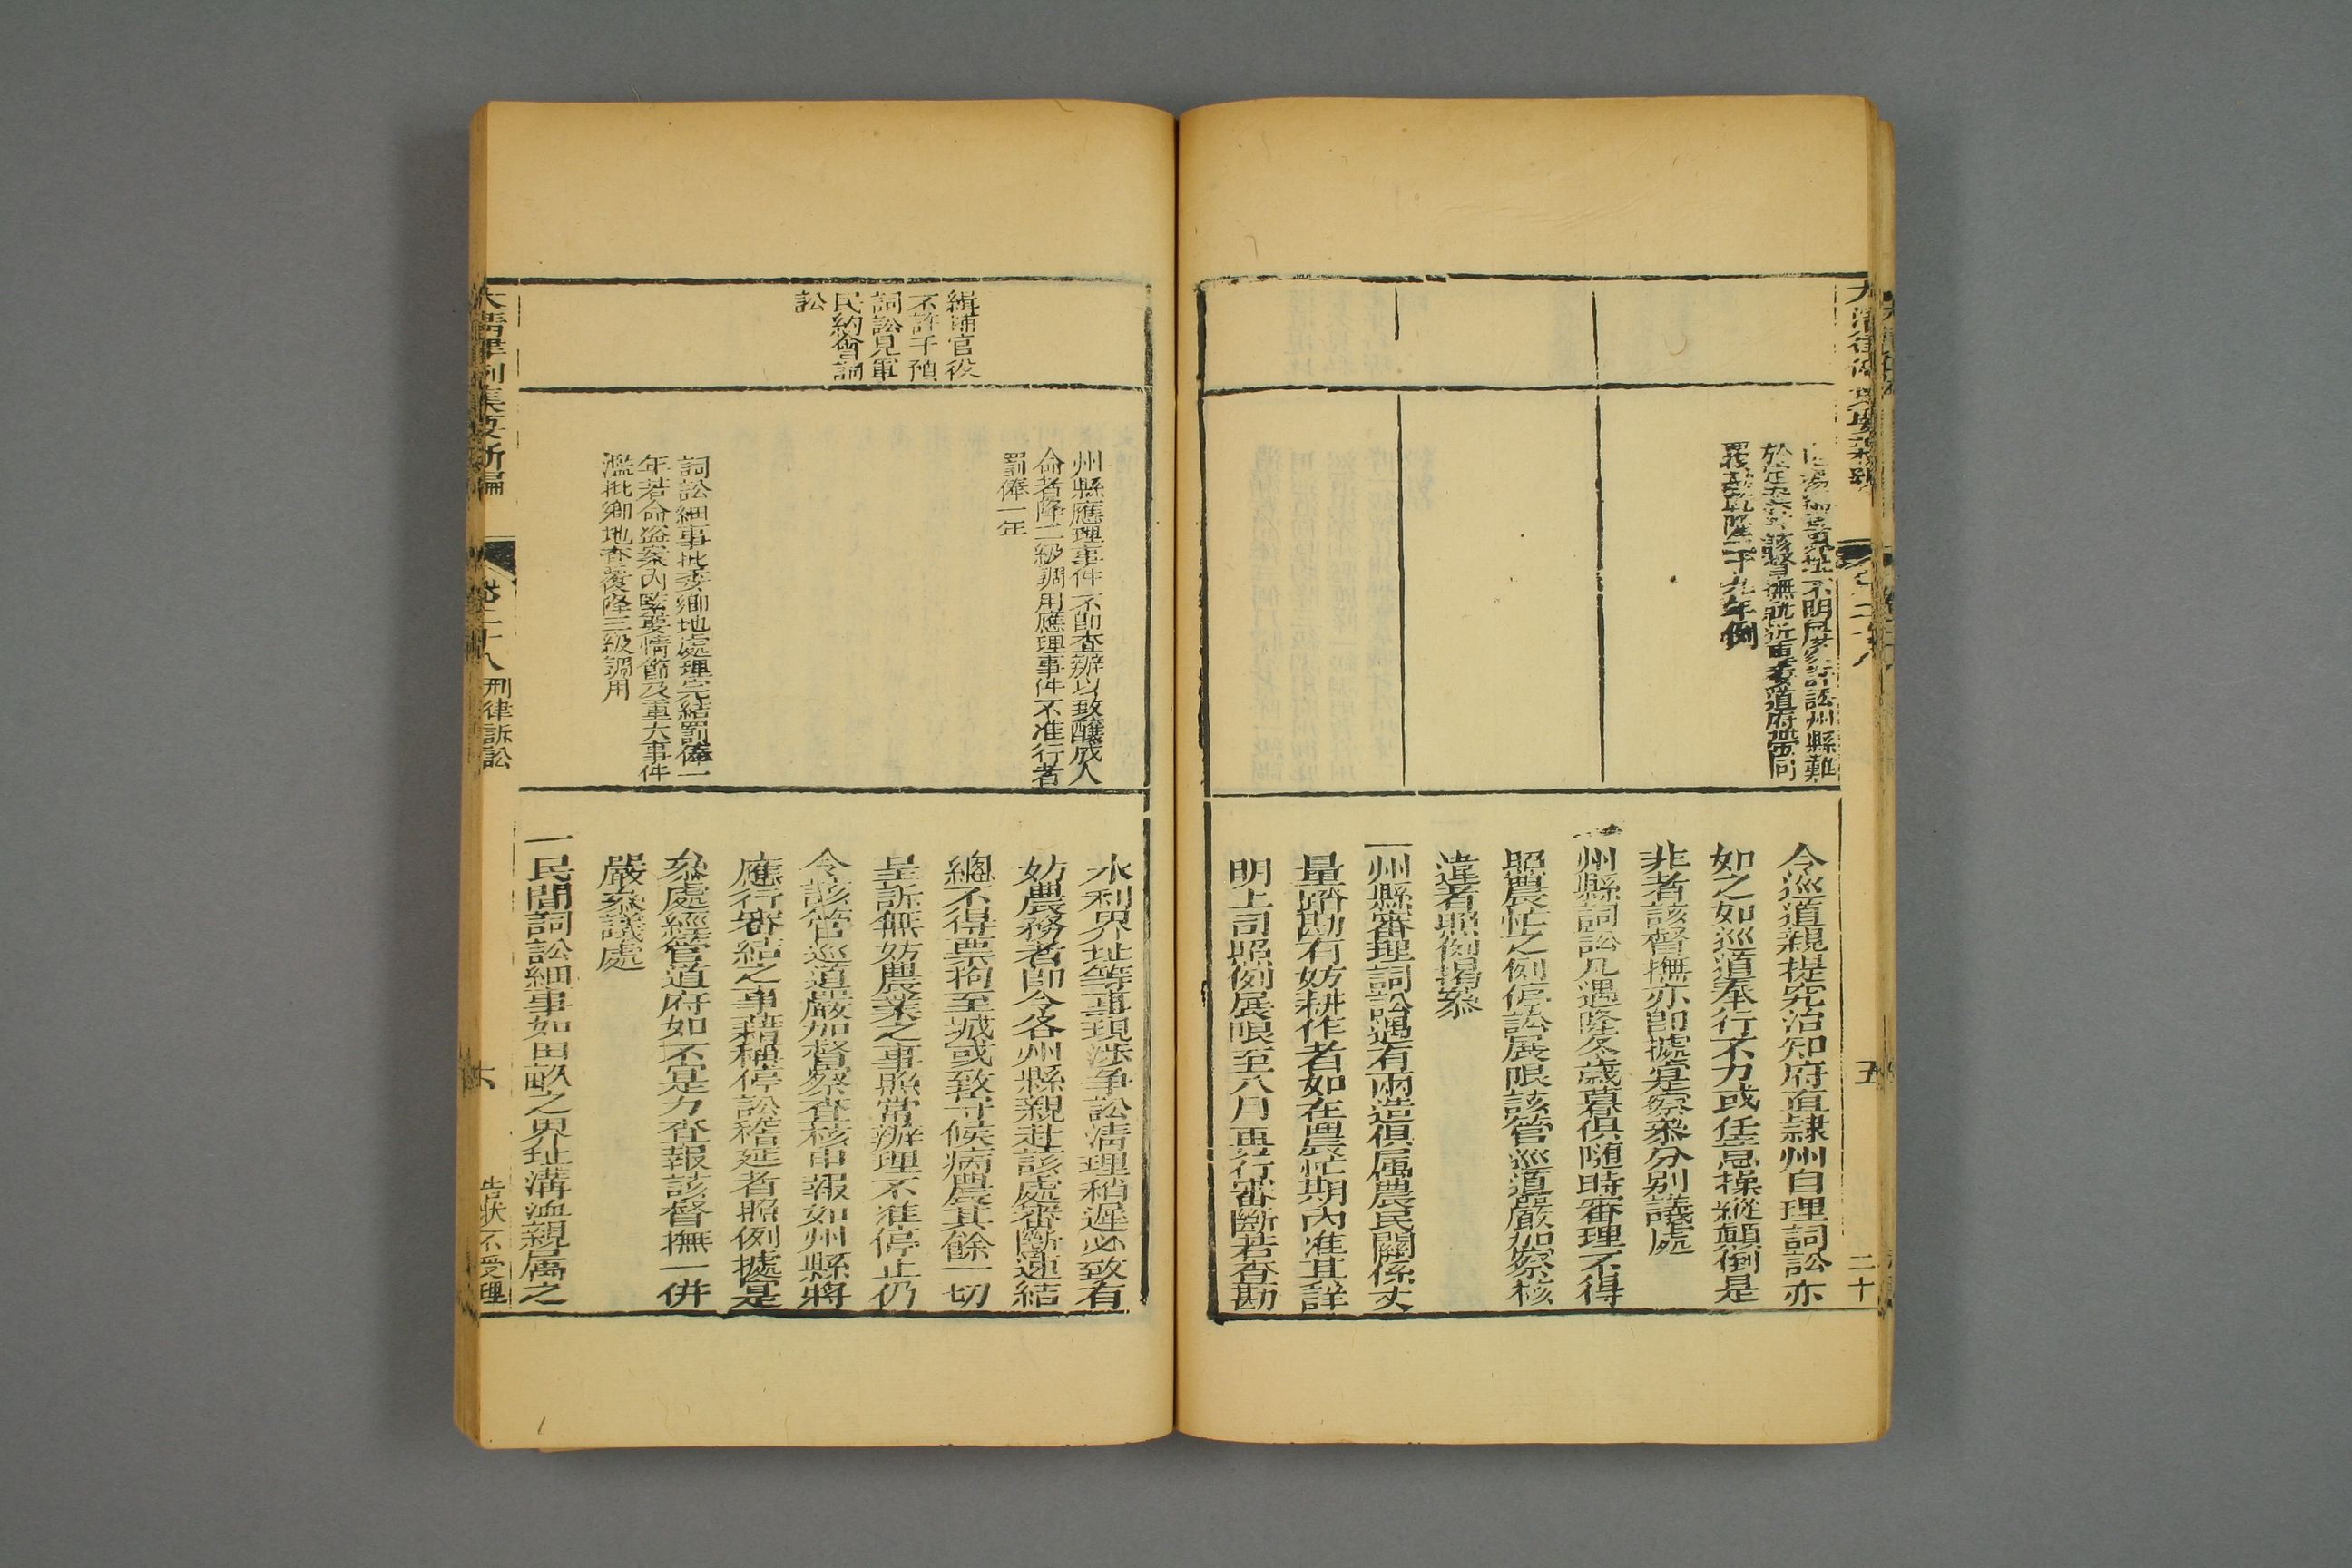 不明屢糸訐訟州縣難
於定案該督撫就近專委道府帶同
覆二十九年例
令巡道親提究治知府直隸州自理詞訟亦
如之如巡道奉行不力或任意操縱顛倒是
非者該督撫亦即據寔察叅分别議處
一州縣詞訟凡遇隆冬歲暮俱随時審理不得
照農忙之例停訟展限該管巡道嚴加察核
違者照例揭叅
一州縣審理詞訟遇有兩造俱屬農民關係丈
量踏勘有妨耕作者如在農忙期內准其詳
明上司照例展限至八月再行審斷若查勘
五
二十
緝捕官役
不許干預
詞訟見軍
民約會詞
訟
州縣應理事件不卽查辦以致釀成人
命者降二級調用應理事件不准行者
罰俸一年
詞訟細事批委鄉地處理完結罰俸一
年若命盜案內緊要情節及重大事件
濫批鄉地查覆降三級調用
水利界址等事現涉爭訟清理稍遲必致有
妨農務者卽令各州縣親赴該處審斷速結
總不得票拘至城或致守候病農其餘一切
呈訴無妨農業之事照常辦理不准停止仍
令該管巡道嚴加督察查核申報如州縣將
應行審結之事藉稱停訟稽延者照例據寔
叅處經管道府如不寔力查報該督撫一併
嚴叅議處
一民間詞訟細事如田畝之界址溝洫親屬之
大清律例集要新編
卷二十八
刑律訴訟
六
告狀不受理